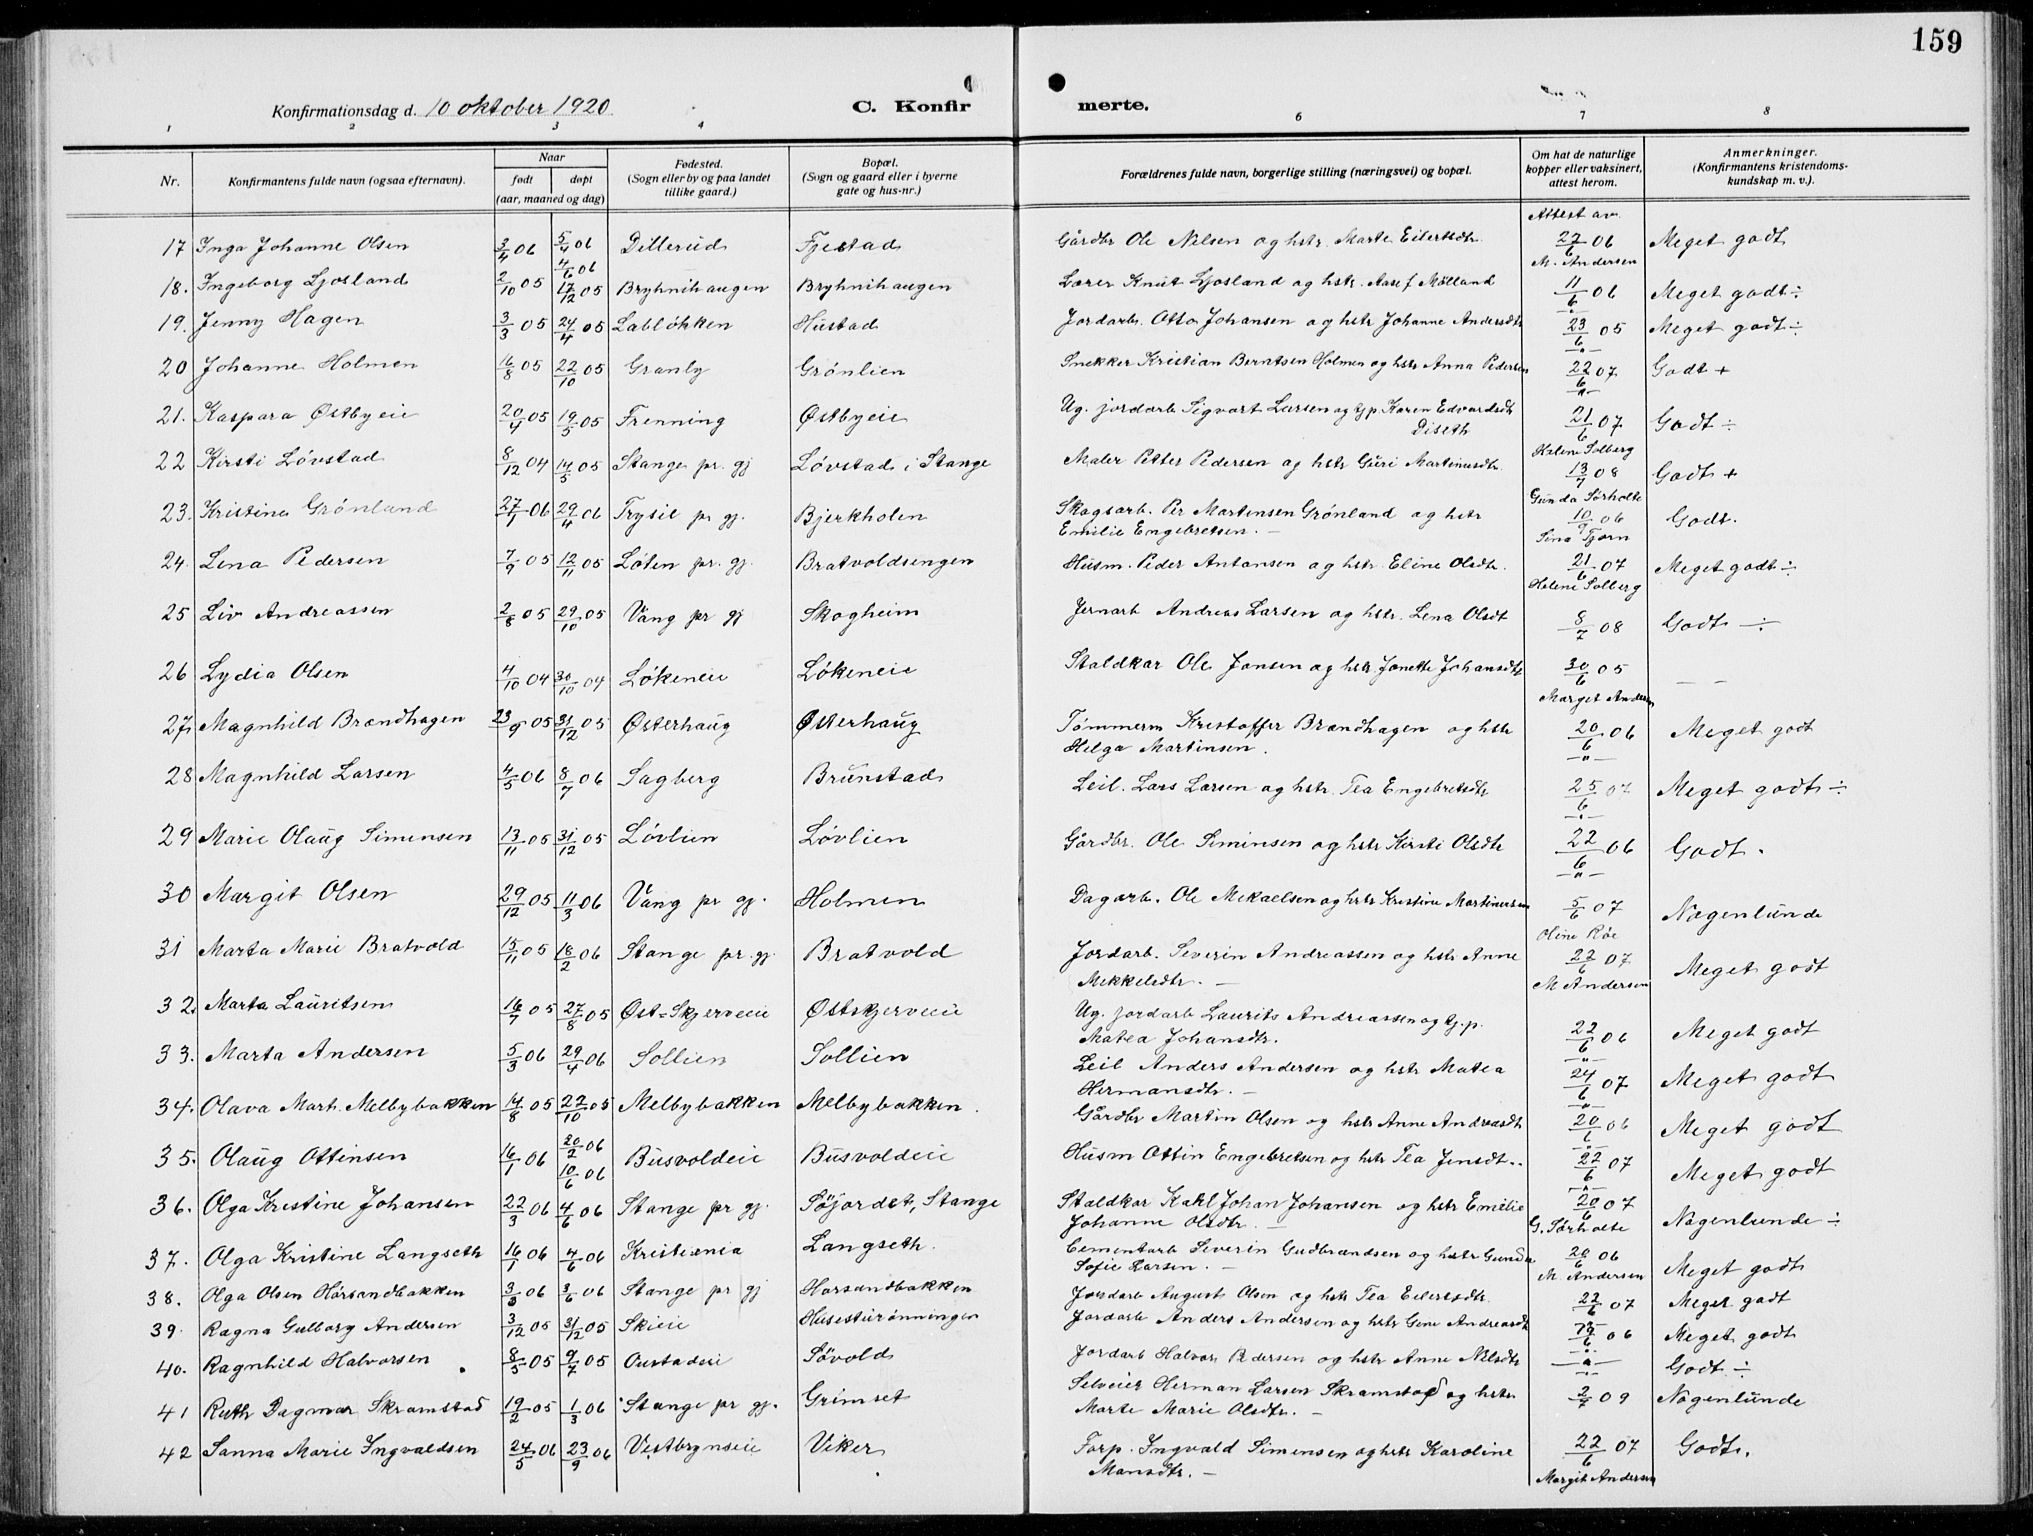 159
Konfirmationsdag d. 10 oktober 1920. C. Konfirmerte.
1 2 3 4 6 7 8
Nr. Konfirmantens fulde navn (ogsaa efternavn). Naar født døpt (aar, maaned og dag) Fødested. (Sogn eller by og paa landet tillike gaard.) Bopæl. (Sogn og gaard eller i byerne gate og hus-nr.) Forældrenes fulde navn, borgerlige stilling (næringsvei) og bopæl. Om hat de naturlige kopper eller vaksinert, attest herom. Anmerkninger. (Konfirmantens kristendomskundskap m. v.).
Attest av
17 Inga Johanne Olsen 3/4 06 5/4 06 4/6 06 Dillerud Fjestad Gårdbr Ole Nilsen og hstr. Marte Eilertsdtr. 22/6 06 M. Andersen Meget godt
18. Ingeborg Ljosland 2/10 05 17/12 05 Bryhnihaugen Bryhnihaugen Lærer Knut Ljosland og hstr. Aase f Mølland 11/6 06 Meget godt ÷
19. Jenny Hagen 3/3 05 24/4 05 Labløkken Hustad Jordarb. Otto Johansen og hstr Johanne Andersdtr 23/6 05 Meget godt ÷
20 Johanne Holmen 16/8 05 22/10 05 Granly Grønlien Snekker Kristian Berntsen Holmen og hstr Anna Pedersen 22/6 07 Godt +
21. Kaspara Østbyeie 20/4 05 19/5 05 Frenning Østbyeie Ug. jordarb Sigvart Larsen og Gjp Karen Edvardsdtr Diseth 21/6 07 Helene Solberg Godt ÷
22 Kirsti Løvstad 8/12 04 14/5 05 Stange pr. gj Løvstad i Stange Maler Petter Pedersen og hstr Guri Martinusdtr. 13/7 08 Gunda Sørholte Godt +
23. Kristine Grønland 27/1 06 29/4 06 Trysil pr gj. Bjerkholen Skogsarb. Per Martensen Grønland og hstr
Emilie Engebretsen. — 10/9 06 Sina Tjørn Godt.
24. Lena Pedersen 7/9 05 12/11 05 Løten pr. gj. Bratvoldsengen Husm. Peder Antonsen og hstr. Eline Olsdtr. 21/6 07 Helene Solberg Meget godt ÷
25 Liv Andreassen 2/8 05 29/10 05 Vang pr gj Skogheim Jernarb Andreas Larsen og hstr. Lena Olsdt 8/7 08 Godt ÷
26 Lydia Olsen 4/10 04 30/10 04 Løkeneie Løkeneie Staldkar Ole Jansen og hstr Janette Johansdtr 30/6 05 Marget Andersen — —
27. Magnhild Brændhagen 23/9 05 31/12 05 Østerhaug Østerhaug Tømmerm Kristoffer Brændhagen og hstr
Helga Martinsen. 20/6 06 Meget godt
28 Magnhild Larsen 4/5 06 8/7 06 Sagberg Brunstad Leil. Lars Larsen og hstr. Tea Engebretsdtr 25/6 07 Meget godt ÷
29 Marie Olaug Simensen 13/11 05 31/12 05 Løvlien Løvlien Gårdbr. Ole Siminsen og hstr Kirsti Olsdtr 22/6 06 Godt.
30 Margit Olsen 29/12 05 11/3 06 Vang pr gj. Holmen Dagarb. Ole Mikaelsen og hstr Kristine Martinusen 5/6 07 Oline Røe Nogenlunde
31 Marta Marie Bratvold 15/11 05 18/2 06 Stange pr. gj. Bratvold Jordarb. Severin Andreassen og hstr Anne
Mekkelsdtr. — 22/6 07 M Andersen Meget godt
32. Marta Lauritsen 16/7 05 27/8 05 Øst-Skjerveeie Østskjerveeie Ug. jordarb Laurits Andreassen og Gj.p.
Matea Johansdtr. 22/6 06 Meget godt
33. Marta Andersen 5/3 06 29/4 06 Sollien Sollien Leil Anders Andersen og hstr Matea
Hermansdtr. — 24/6 07 Meget godt
34. Olava Mart. Melbybakken 14/8 05 22/10 05 Melbybakken Melbybakken. Gårdbr Martin Olsen og hstr Anne Andreasdt 20/6 06 Meget godt
35. Olaug Ottinsen 16/1 06 20/2 06 10/6 06 Busvoldeie Busvoldeie Husm Ottin Engebretsen og hstr Tea Jensdt.. 22/6 07 Meget godt
36. Olga Kristine Johansen 22/3 06 4/6 06 Stange pr gj. Søjordet, Stange Staldkar Kahl Johan Johansen og hstr Emilie
Johanne Olsdtr. — 20/6 07 G. Sørholte Nogenlunde ÷
37. Olga Kristine Langseth 16/1 06 4/6 06 Kristiania Langseth. Cementarb Severin Gudbrandsen og hstr Gunda
Sofie Larsen. — 20/6 06 M. Andersen Meget godt
38. Olga Olsen Hørsandbakken 3/3 06 3/6 06 Stange pr gj Horsandbakken Jordarb August Olsen og hstr Tea Eilertsdtr. 22/6 07 Meget godt
39. Ragna Gulborg Andersen 3/12 05 31/12 05 Skieie Husesturønningen Jordarb Anders Andersen og hstr Gine Andreasdt 06 Meget godt
40. Ragnhild Halvorsen 8/5 05 9/7 05 Oustadeie Søvold Jordarb Halvor Pedersen og hstr Anne Nilsdtr —"— Godt ÷
41 Ruth Dagmar Skramstad 19/2 05 1/3 06 Stange pr gj. Grimset Selveier Herman Larsen Skramstad og hstr
Marte Marie Olsdtr. — 2/7 09 Nogenlunde
42 Sanna Marie Ingvaldsen 24/5 06 23/9 06 Vestbrynseie Viker Forp. Ingvald Simensen og hstr Karoline
Mansdtr. — 22/6 07 Margit Andersen Godt.